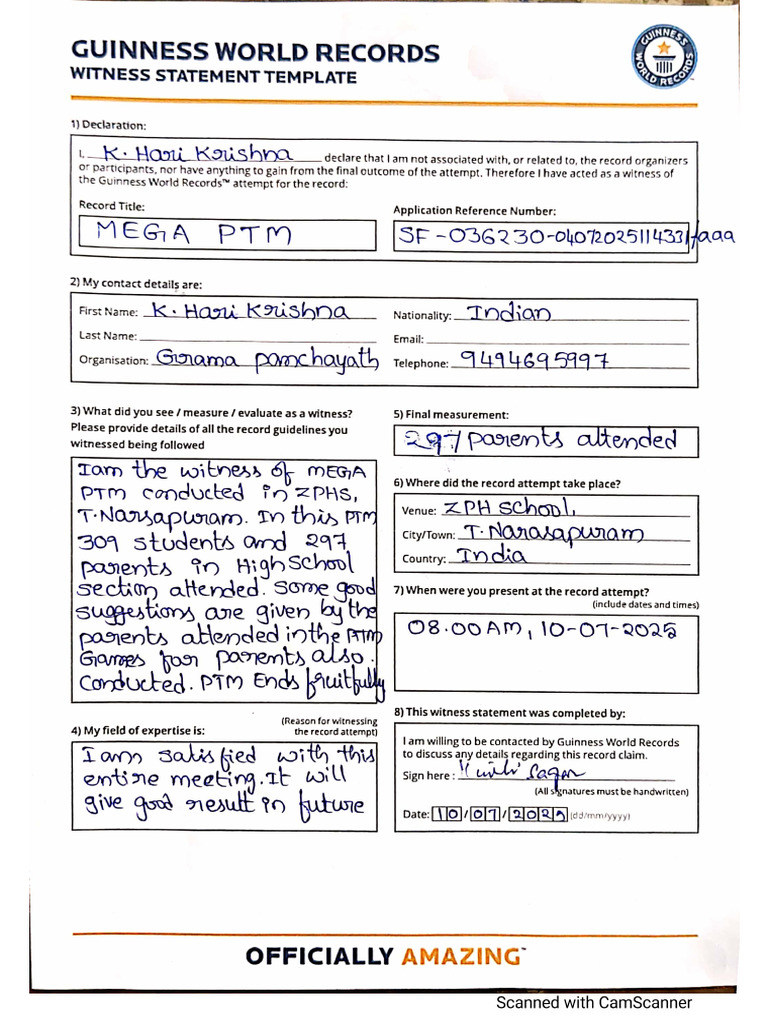 GUINNESS WORLD RECORDS
WITNESS STATEMENT TEMPLATE
GUINNESS WORLD RECORDS
1) Declaration:
I, K. Hari Krishna declare that I am not associated with, or related to, the record organizers
or participants, nor have anything to gain from the final outcome of the attempt. Therefore I have acted as a witness of
the Guinness World Records™ attempt for the record:
Record Title:
MEGA PTM
Application Reference Number:
SF-036230-04072025114331faaa
2) My contact details are:
First Name: K. Hari Krishna
Last Name:
Organisation: Grama panchayath
Nationality: Indian
Email:
Telephone: 9494695997
3) What did you see / measure / evaluate as a witness?
Please provide details of all the record guidelines you
witnessed being followed
I am the witness of MEGA
PTM conducted in ZPHS,
T. Narsapuram. In this PTM
309 students and 297
parents in High School
section attended. Some good
suggestions are given by the
parents attended in the PTM
Games for parents also.
Conducted. PTM Ends fruitfully
4) My field of expertise is:
(Reason for witnessing
the record attempt)
I am satisfied with this
entire meeting. It will
give good result in future
5) Final measurement:
297 parents attended
6) Where did the record attempt take place?
Venue: ZPH School,
City/Town: T. Narasapuram
Country: India
7) When were you present at the record attempt?
(include dates and times)
08.00AM, 10-07-2025
8) This witness statement was completed by:
I am willing to be contacted by Guinness World Records
to discuss any details regarding this record claim.
Sign here:
(All signatures must be handwritten)
Date: 10/07/2025 (dd/mm/yyyy)
OFFICIALLY AMAZING™
Scanned with CamScanner